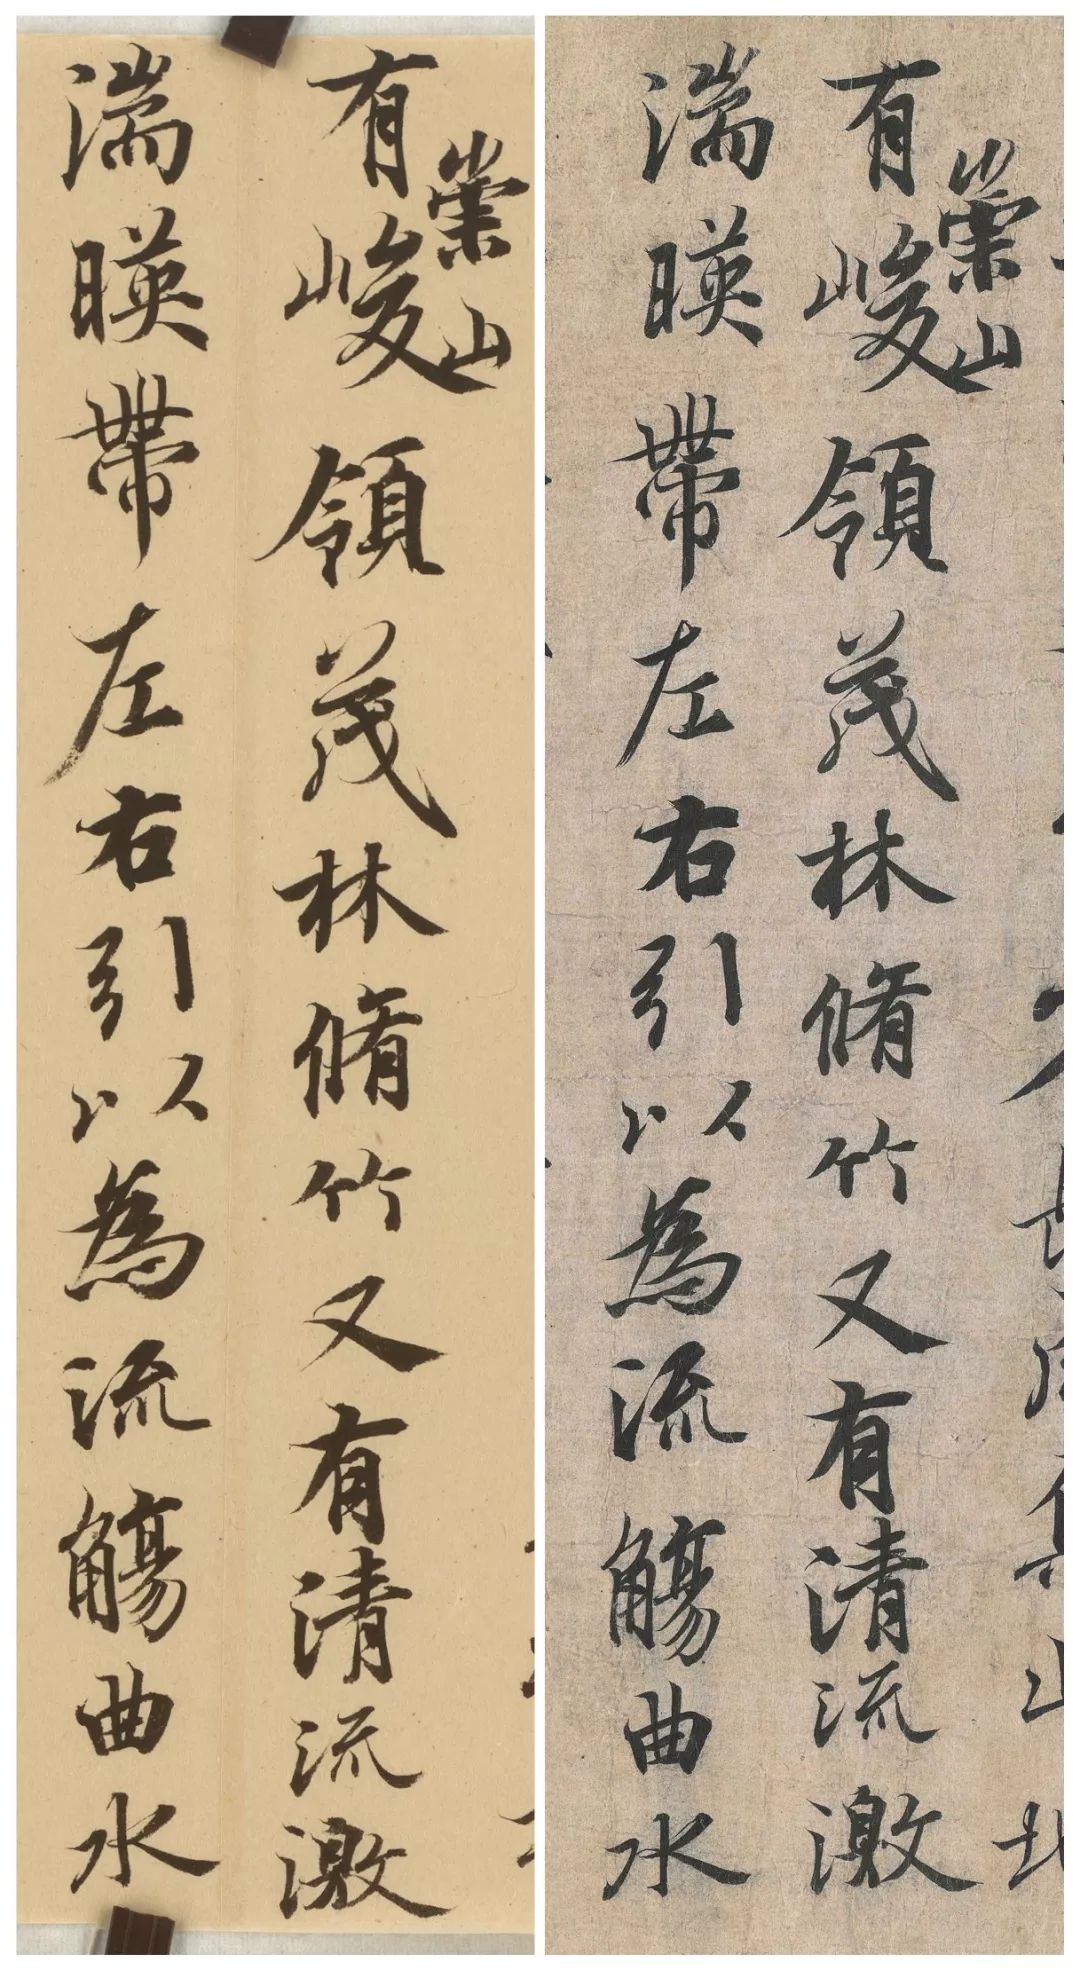 崇山
有峻領茂林脩竹又有清流激
湍暎帶左右引以為流觴曲水
崇山
有峻領茂林脩竹又有清流激
湍暎帶左右引以為流觴曲水